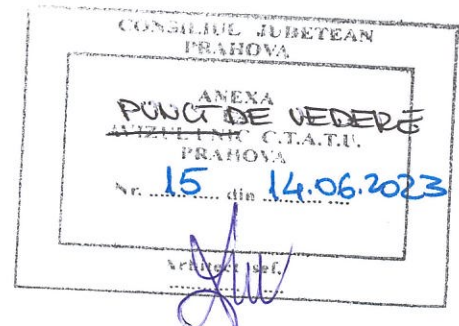 CONSILIUL JUDEŢEAN
PRAHOVA
ANEXA
PUNCT DE VEDERE
AVIZUL UNIC C.T.A.T.U.
PRAHOVA
Nr. 15 din 14.06.2023
Arhitect şef,